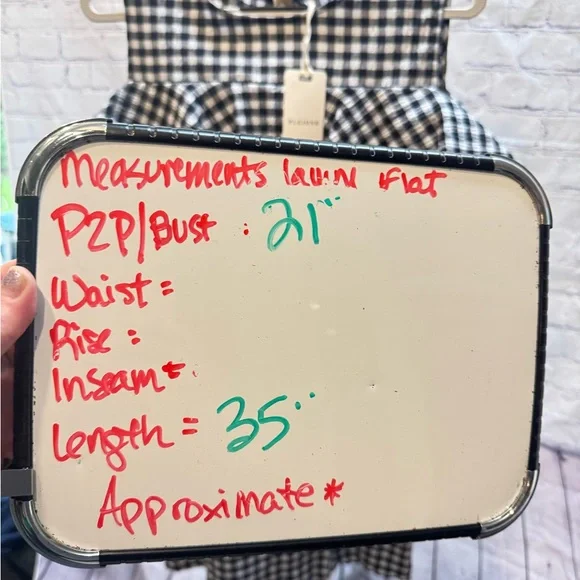 Measurements laying flat
P2P/Bust : 21"
Waist =
Rise :
Inseam =
Length = 35"
Approximate *